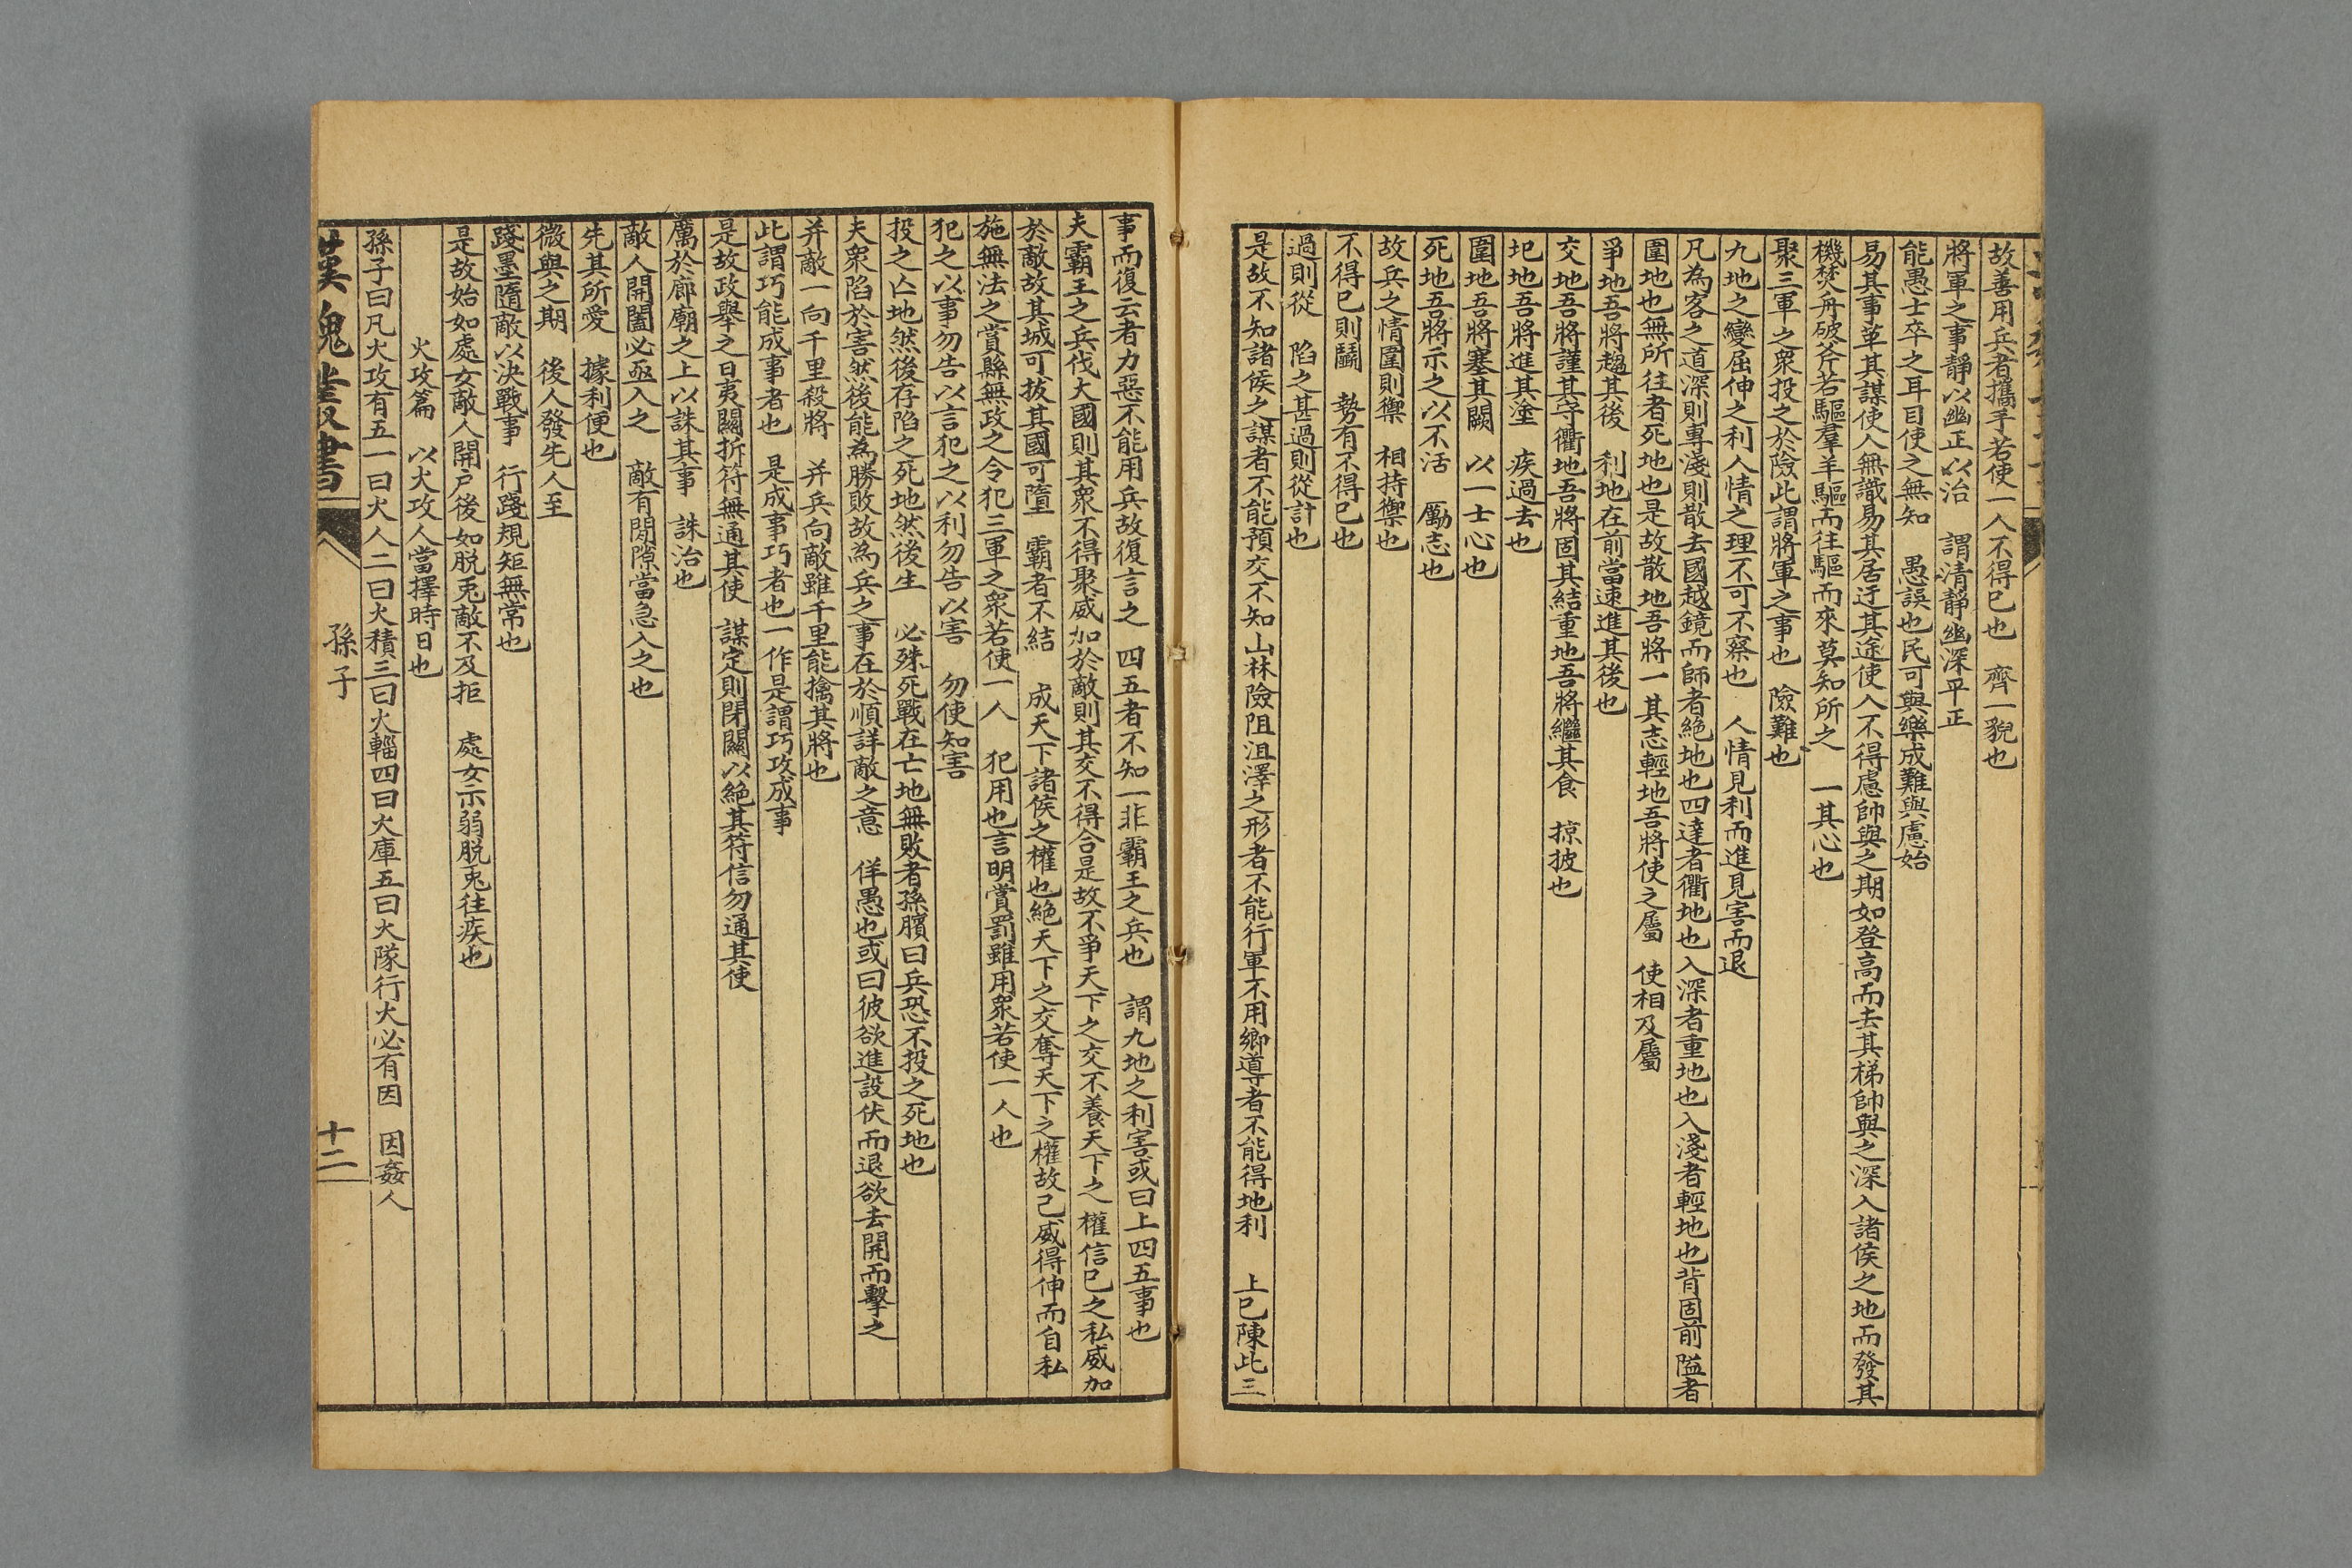 故善用兵者攜手若使一人不得已也　齊一貌也
將軍之事靜以幽正以治　謂清靜幽深平正
能愚士卒之耳目使之無知　愚誤也民可與樂成難與慮始
易其事革其謀使人無識易其居迂其途使人不得慮帥與之期如登高而去其梯帥與之深入諸侯之地而發其
機焚舟破斧若驅羣羊驅而往驅而來莫知所之　一其心也
聚三軍之衆投之於險此謂將軍之事也　險難也
九地之變屈伸之利人情之理不可不察也　人情見利而進見害而退
凡為客之道深則專淺則散去國越鏡而師者絕地也四達者衢地也入深者重地也入淺者輕地也背固前隘者
圍地也無所往者死地也是故散地吾將一其志輕地吾將使之屬　使相及屬
爭地吾將趨其後　利地在前當速進其後也
交地吾將謹其守衢地吾將固其結重地吾將繼其食　掠披也
圯地吾將進其塗　疾過去也
圍地吾將塞其闕　以一士心也
死地吾將示之以不活　勵志也
故兵之情圍則禦　相持禦也
不得已則鬭　勢有不得已也
過則從　陷之甚過則從計也
是故不知諸侯之謀者不能預交不知山林險阻沮澤之形者不能行軍不用鄉導者不能得地利　上已陳此三
事而復云者力惡不能用兵故復言之　四五者不知一非霸王之兵也　謂九地之利害或曰上四五事也
夫霸王之兵伐大國則其衆不得聚威加於敵則其交不得合是故不爭天下之交不養天下之權信已之私威加
於敵故其城可拔其國可墮　霸者不結　成天下諸侯之權也絕天下之交奪天下之權故己威得伸而自私
施無法之賞縣無政之令犯三軍之衆若使一人　犯用也言明賞罰雖用衆若使一人也
犯之以事勿告以言犯之以利勿告以害　勿使知害
投之亡地然後存陷之死地然後生　必殊死戰在亡地無敗者孫臏曰兵恐不投之死地也
夫衆陷於害然後能為勝敗故為兵之事在於順詳敵之意　佯愚也或曰彼欲進設伏而退欲去開而擊之
并敵一向千里殺將　并兵向敵雖千里能擒其將也
此謂巧能成事者也　是成事巧者也一作是謂巧攻成事
是故政舉之日夷關折符無通其使　謀定則閉關以絕其符信勿通其使
厲於廊廟之上以誅其事　誅治也
敵人開闔必亟入之　敵有閒隙當急入之也
先其所愛　據利便也
微與之期　後人發先人至
踐墨隨敵以決戰事　行踐規矩無常也
是故始如處女敵人開戶後如脫兎敵不及拒　處女示弱脫兎往疾也
火攻篇　以火攻人當擇時日也
孫子曰凡火攻有五一曰火人二曰火積三曰火輜四曰火庫五曰火隊行火必有因　因姦人
漢魏叢書　孫子　十二